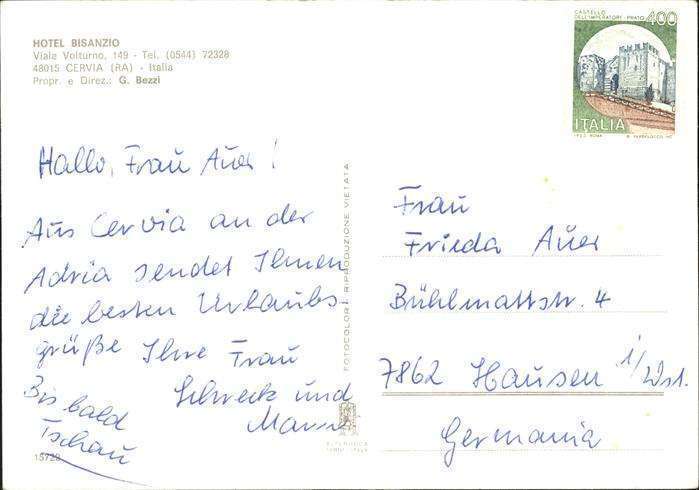 HOTEL BISANZIO
Viale Volturno, 149 - Tel. (0544) 72328
48015 CERVIA (RA) - Italia
Propr. e Direz.: G. Bezzi
CASTELLO
DELL'IMPERATORE - PRATO 400
ITALIA
Hallo, Frau Auer!
Aus Cervia an der
Adria sendet Ihnen
die besten Urlaubs
grüße Ihre Frau
Schweck und
Bis bald
Tschau
15729
FOTOCOLOR RIPRODUZIONE VIETATA
Frau
Frieda Auer
Bühlmattstr. 4
7862 Hausen i/Wst.
Germania